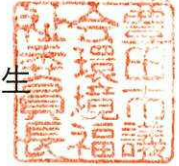 生
豊田市議
会環境福
祉委員長